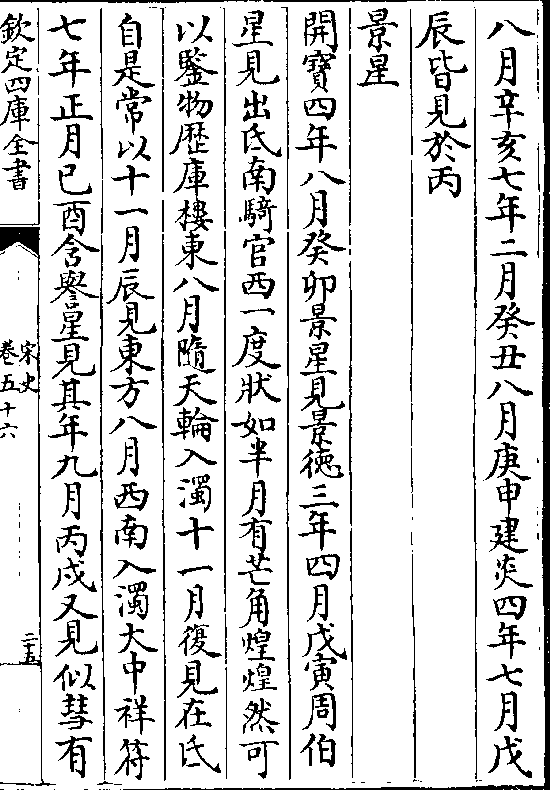 八月辛亥七年二月癸丑八月庚申建炎四年七月戊
辰皆見於丙
景星
開寶四年八月癸卯景星見景徳三年四月戊寅周伯
星見出氐南騎官西一度狀如半月有芒角煌煌然可
以鑒物歴庫樓東八月隨天輪入濁十一月復見在氐
自是常以十一月辰見東方八月西南入濁大中祥符
七年正月己酉含譽星見其年九月丙戌又見似彗有
欽定四庫全書
宋史
卷五十六
二十五